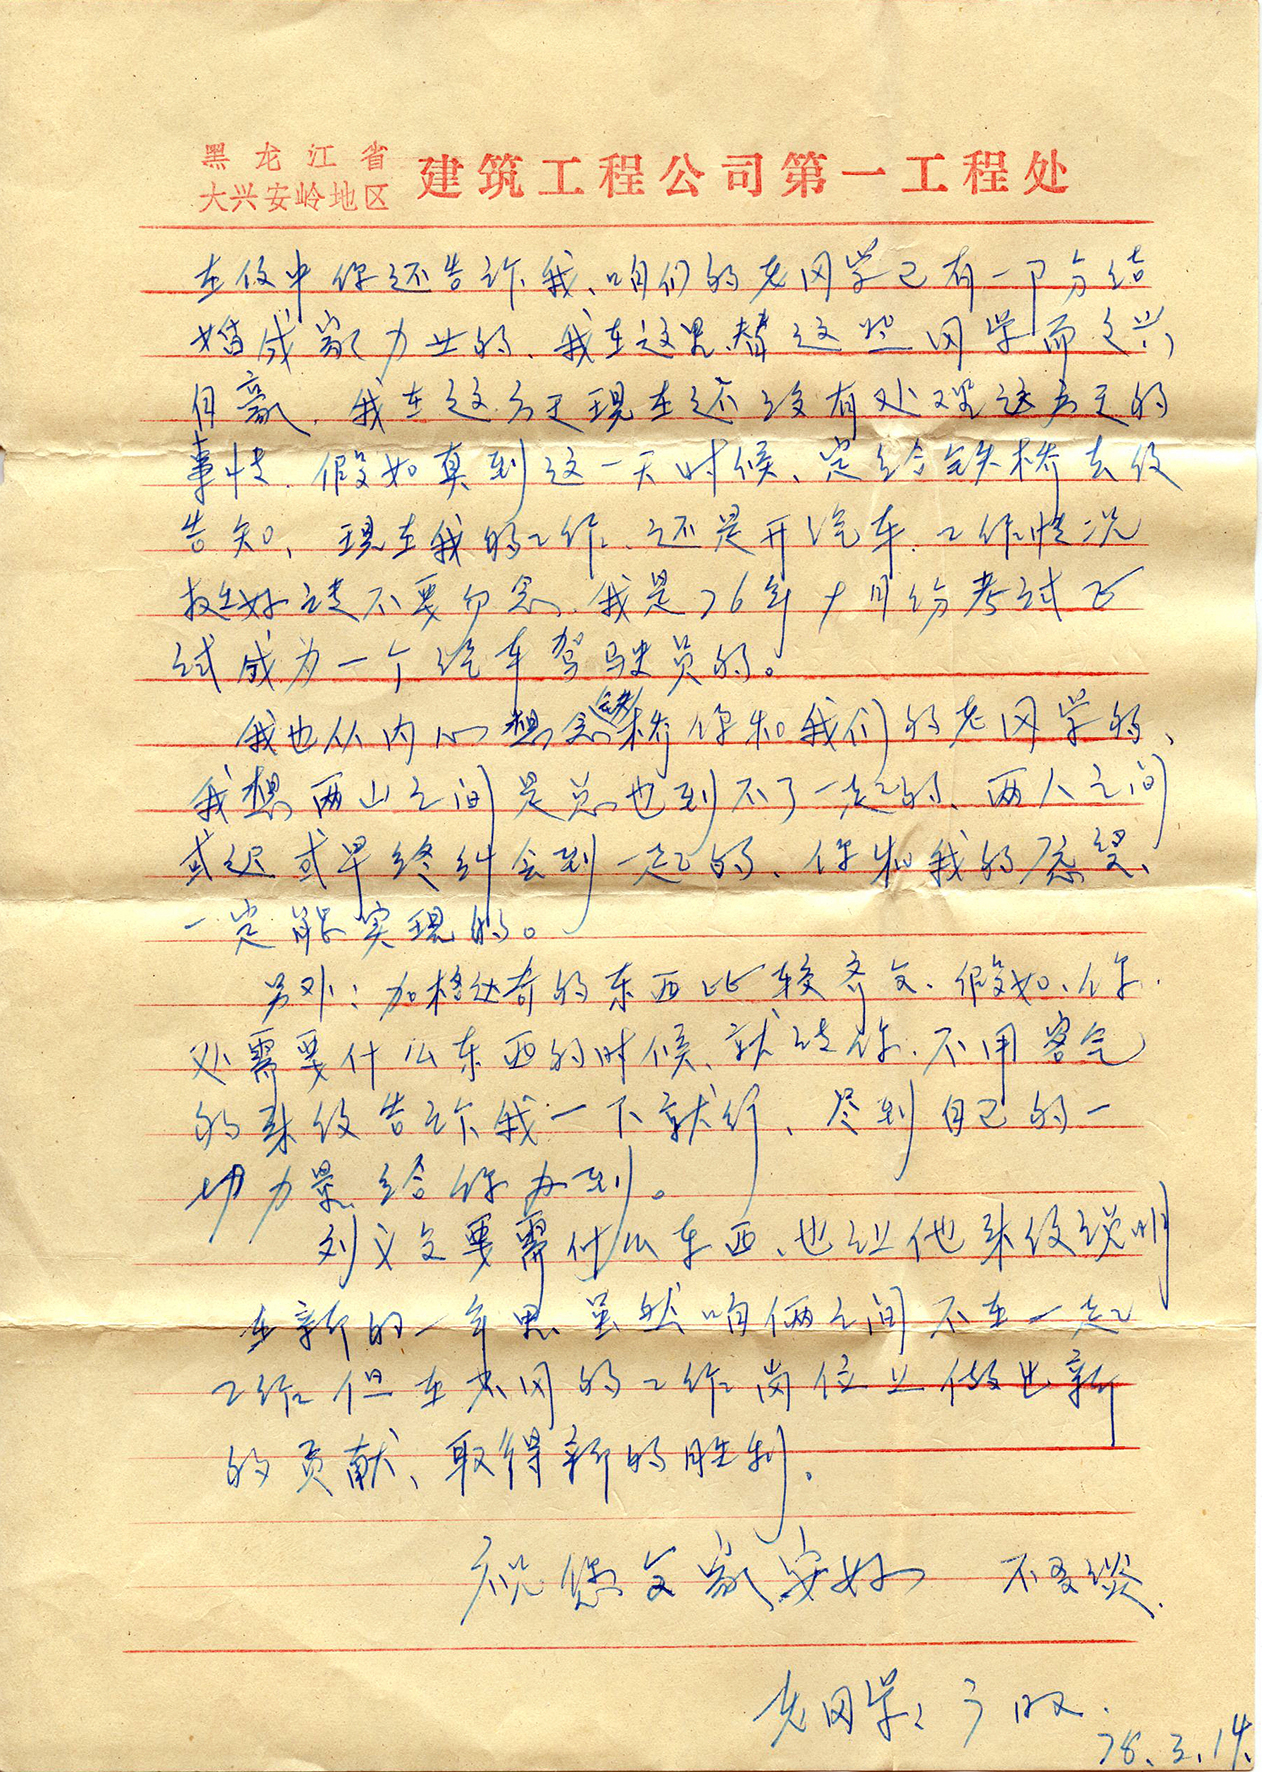 黑龙江省
大兴安岭地区
建筑工程公司第一工程处
在信中你还告诉我、咱们的老同学已有一部分结
婚成家力业的、我在这里替这些同学而之兴
自豪、我在这方面现在还没有处理这方面的
事情、假如真到这一天时候、定给铁桥去信
告知、现在我的工作、还是开汽车、工作情况
挺好请不要勿念、我是76年十月份考试正
试成为一个汽车驾驶员的。
我也从内心想念铁桥你和我们的老同学的、
我想两山之间是总也到不了一起的、两人之间
或迟或早终纠会到一起的、你和我的愿望、
一定能实现的。
另外：加格达奇的东西比较齐全、假如、你
处需要什么东西的时候、就请你、不用客气
的来信告诉我一下就行、尽到自己的一
切力量给你办到。
刘义全要需什么东西、也让他来信说明
在新的一年里虽然咱俩之间不在一起
工作但在共同的工作岗位上做出新
的贡献、取得新的胜利。
祝您全家安好 不多谈.
老同学：
78.3.14.